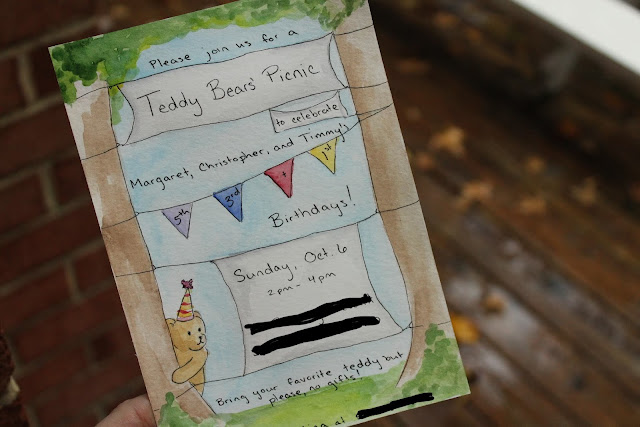 Please join us for a
Teddy Bears' Picnic
to celebrate
Margaret, Christopher, and Timmy's
5th 3rd + 1st
Birthdays!
Sunday, Oct. 6
2pm - 4pm
Bring your favorite teddy but
please, no gifts!
at